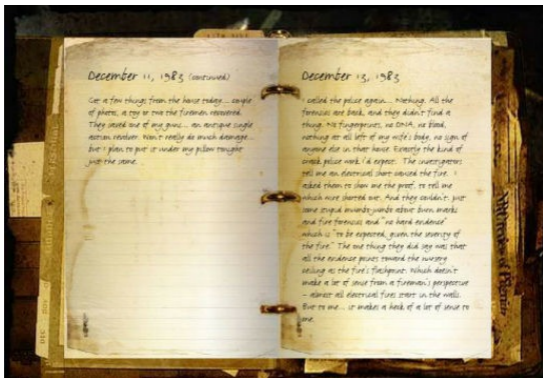 December 11, 1983 (continued)
Got a few things from the house today... couple
of photos, a toy or two the firemen recovered.
They saved one of my guns... an antique single
action revolver. Won't really do much damage...
but I plan to put it under my pillow tonight
just the same.
December 13, 1983
I called the police again... Nothing. All the
forensics are back, and they didn't find a
thing. No fingerprints, no DNA, no blood,
nothing at all left of my wife's body, no sign of
anyone else in that house. Exactly the kind of
crack police work I'd expect. The investigators
tell me an electrical short caused the fire. I
asked them to show me the proof, to tell me
which wire shorted out. And they couldn't. Just
some stupid mumbo-jumbo about burn marks
and fire forensics and "no hard evidence"
which is "to be expected, given the severity of
the fire." The one thing they did say was that
all the evidence points toward the nursery
ceiling as the fire's flashpoint. Which doesn't
make a lot of sense from a fireman's perspective
– almost all electrical fires start in the walls.
But to me... it makes a heck of a lot of sense to
me.